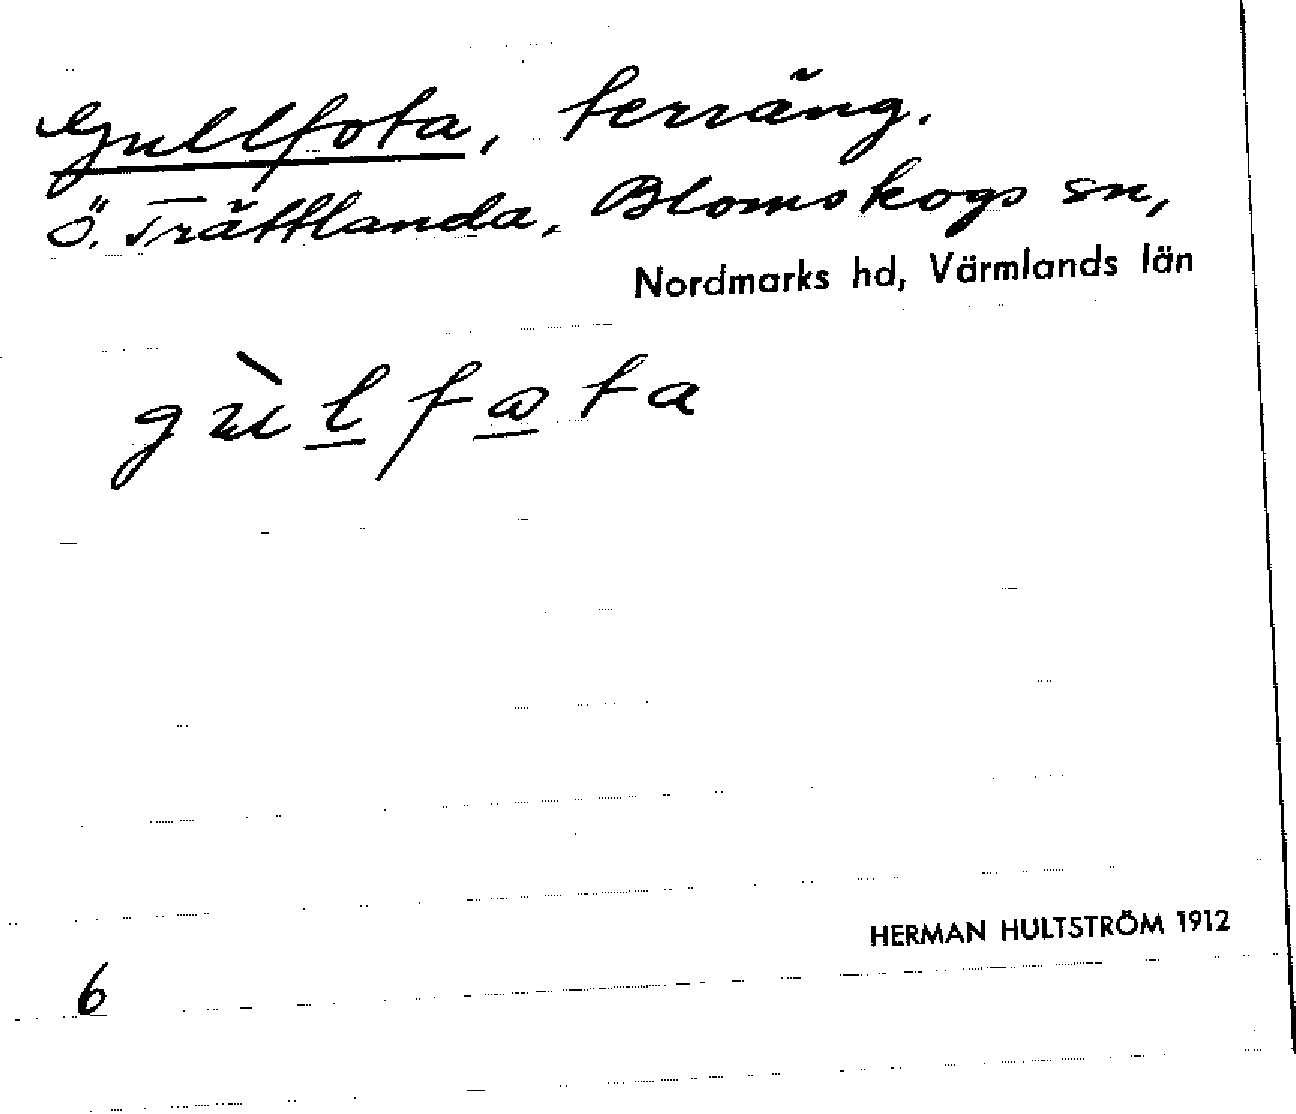 Gullfota, terräng.
Ö. Trättlanda, Blomskogs sn,
Nordmarks hd, Värmlands län
gùlfωta
HERMAN HULTSTRÖM 1912
6